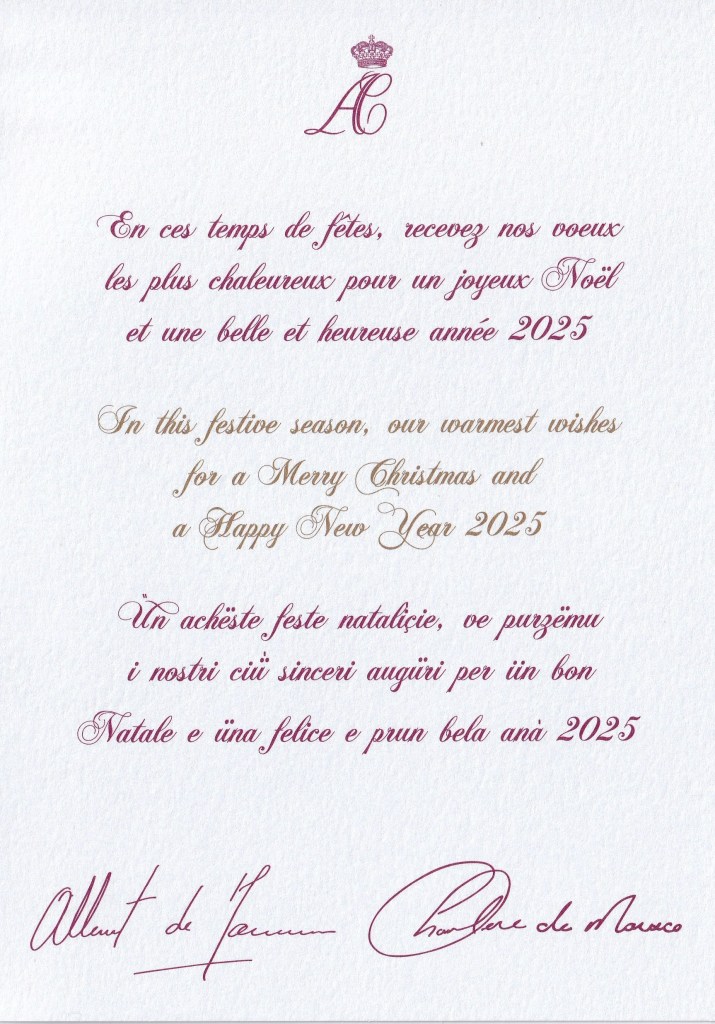 AC
En ces temps de fêtes, recevez nos voeux
les plus chaleureux pour un joyeux Noël
et une belle et heureuse année 2025
In this festive season, our warmest wishes
for a Merry Christmas and
a Happy New Year 2025
Ün achëste feste natalîçie, ve purzëmu
i nostri ciǜ sinceri augüri per iin bon
Natale e üna felice e prun bela anà 2025
Albert de Monaco
Charlene de Monaco